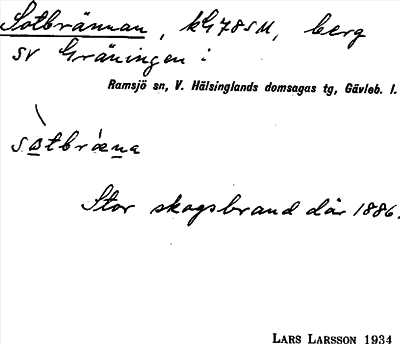 Sotbrännan, kG78SM, berg
SV Gräningen:
Ramsjö sn, V. Hälsinglands domsagas tg, Gävleb. l.
sòtbræ̀na
Stor skogsbrand där 1886.
LARS LARSSON 1934